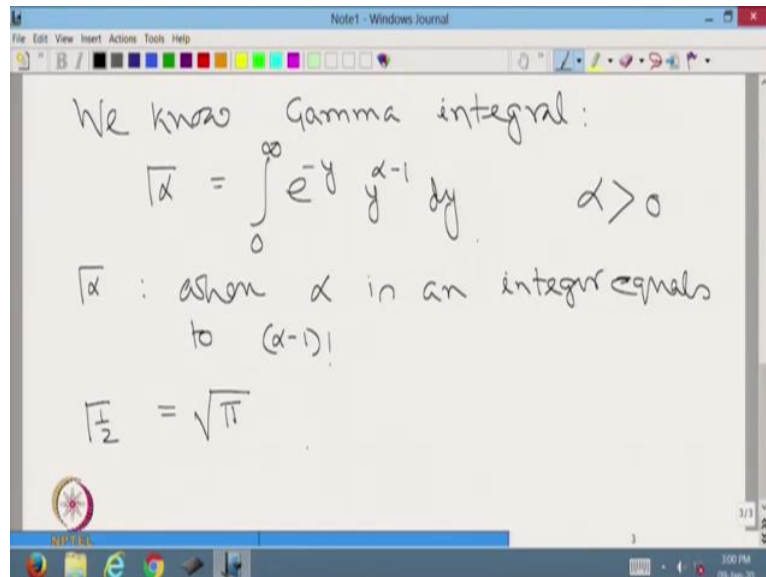 Note1 - Windows Journal
File Edit View Insert Actions Tools Help
B I
We know Gamma integral:
Γα = ∫₀^∞ e^{-y} y^{α-1} dy   α > 0
Γα : when α in an integer equals
to (α-1)!
Γ½ = √π
NPTEL
3/3
3
3:00 PM